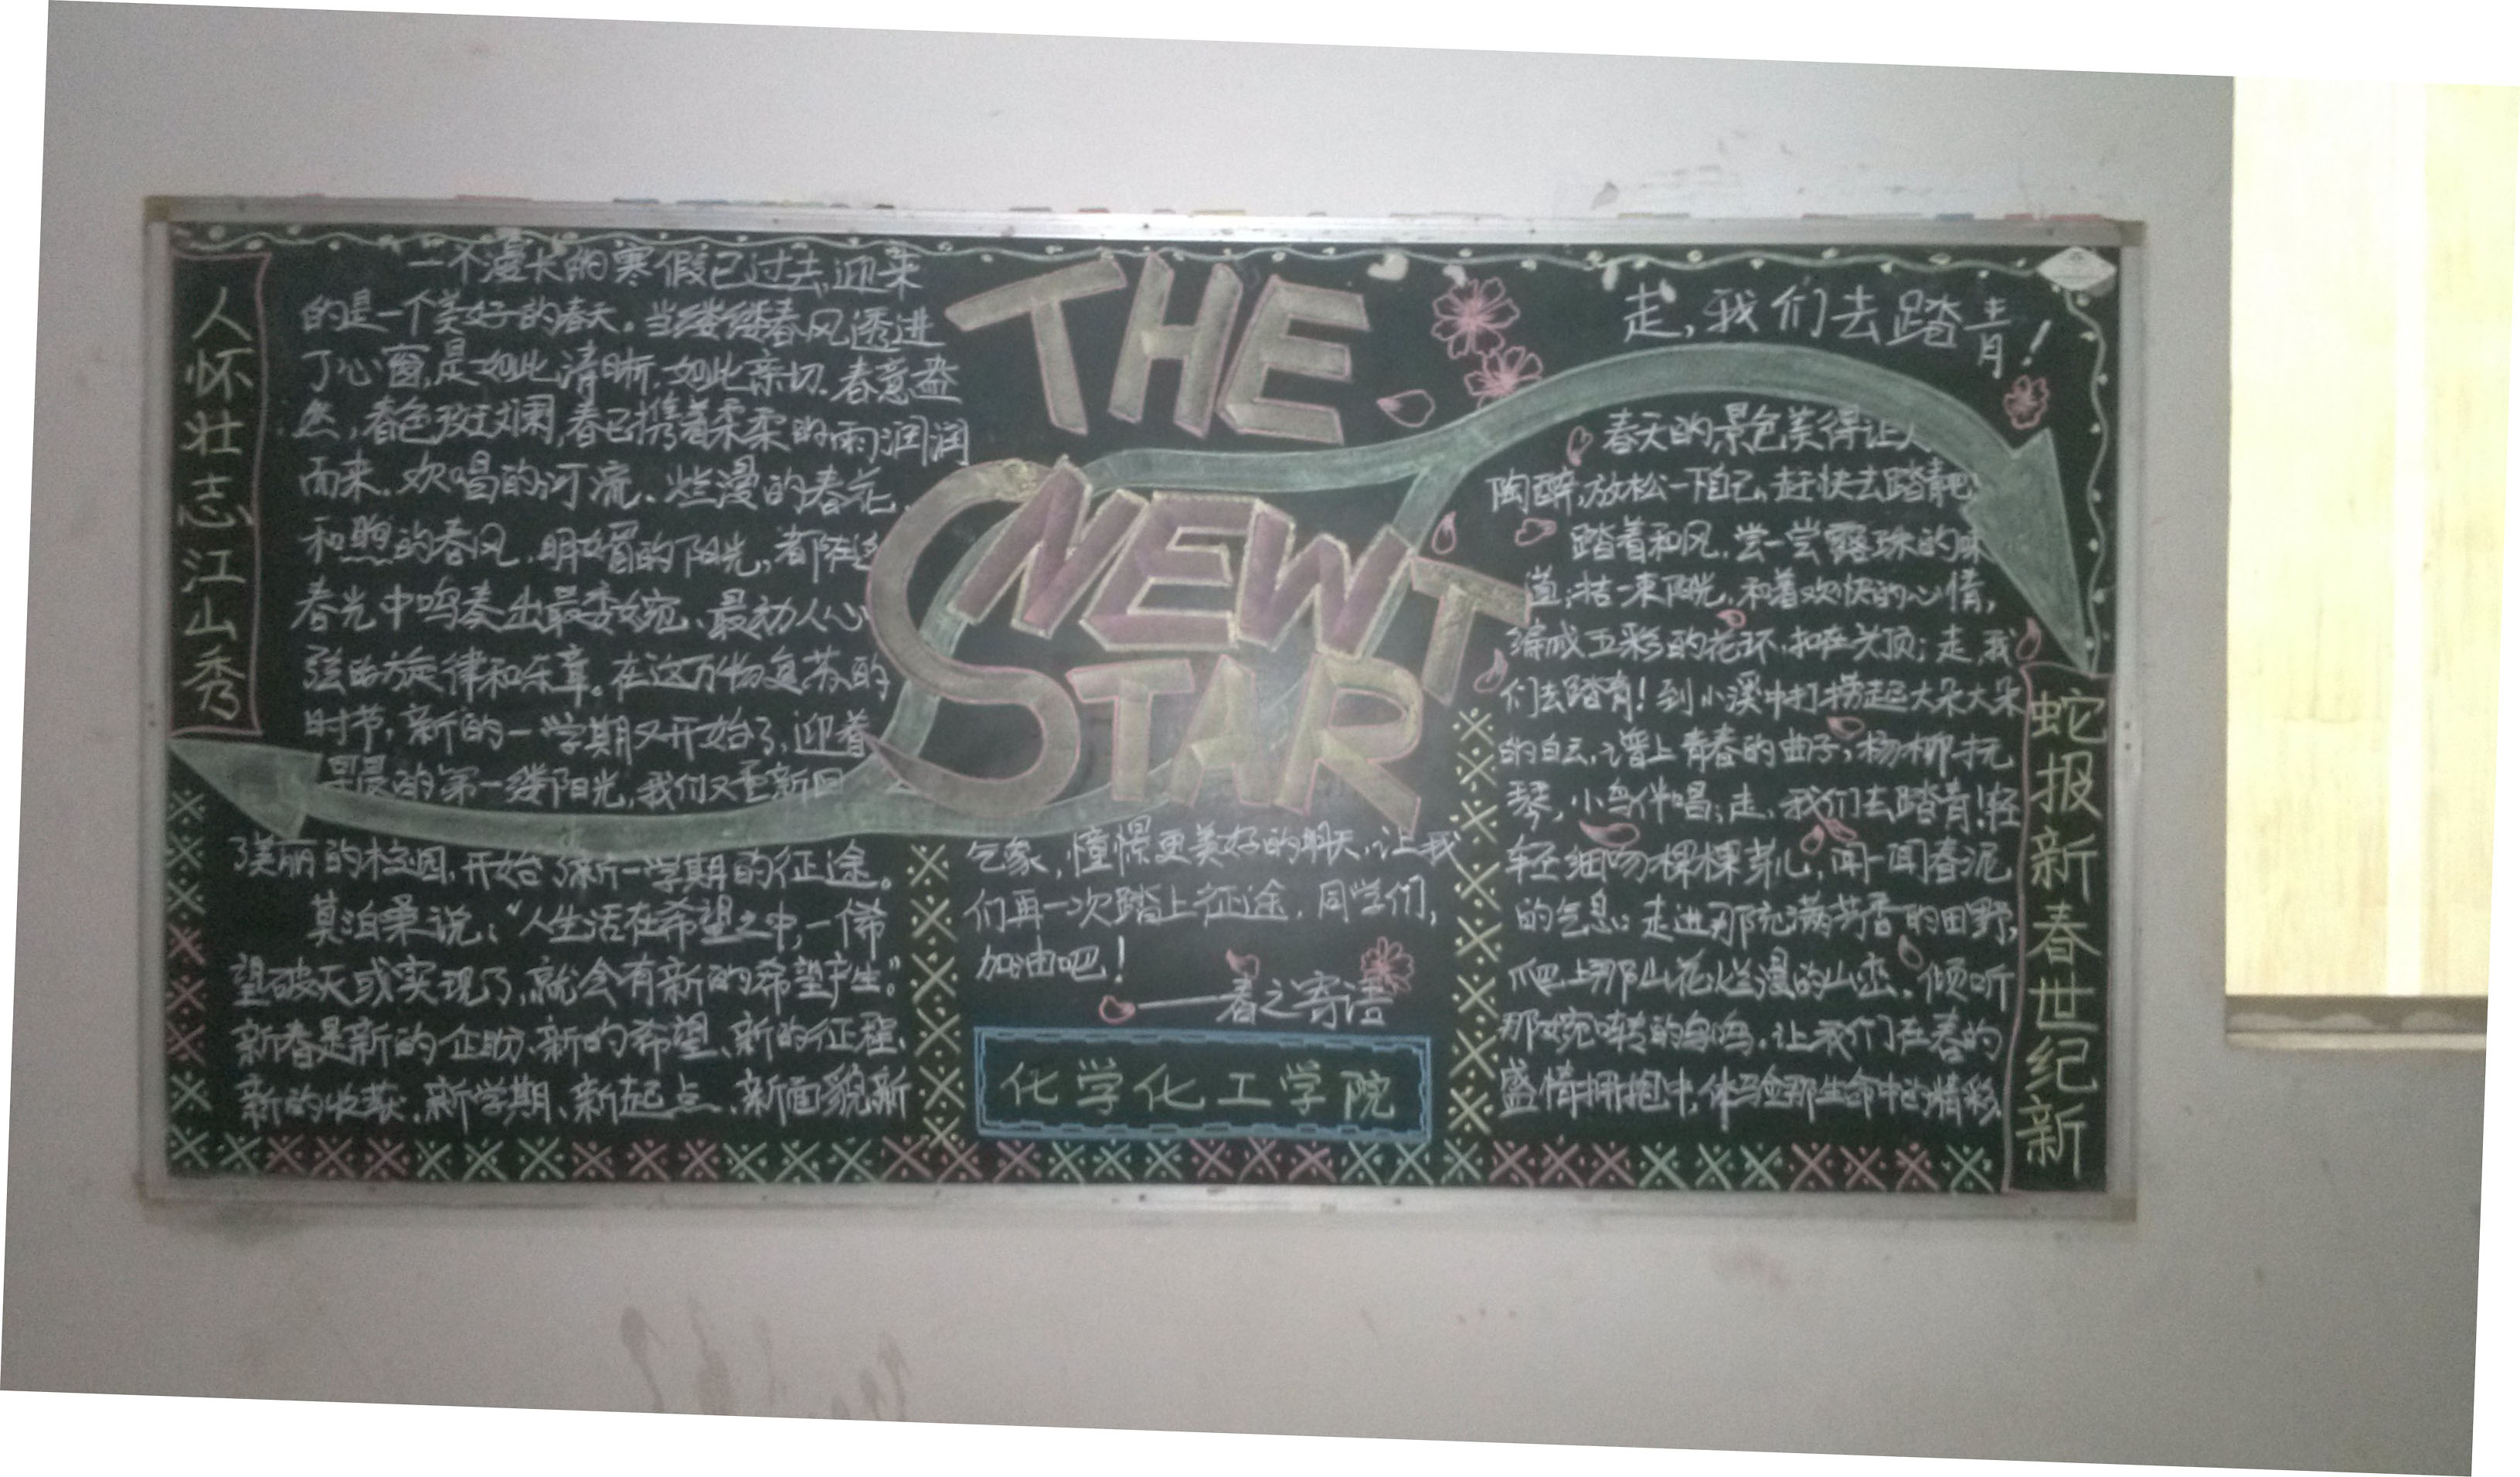 人怀壮志江山秀
一个漫长的寒假已过去,迎来
的是一个美好的春天。当缕缕春风透进
了心窗,是如此清晰,如此亲切.春意盎
然,春色斑斓,春已携着柔柔的雨润润
而来.欢唱的河流、烂漫的春花、
和煦的春风.明媚的阳光,都在这
春光中鸣奏出最委婉、最动人心
弦的旋律和乐章。在这万物复苏的
时节,新的一学期又开始了,迎着
早晨的第一缕阳光,我们又重新回
了美丽的校园,开始了新一学期的征途。
莫泊桑说:“人生活在希望之中,一个希
望破灭或实现了,就会有新的希望产生。”
新春是新的企盼、新的希望、新的征程、
新的收获.新学期、新起点、新面貌新
THE
NEWT
STAR
气象,憧憬更美好的明天,让我
们再一次踏上征途.同学们,
加油吧!
——春之寄语
化学化工学院
走,我们去踏青!
春天的景色美得让人
陶醉,放松一下自己,赶快去踏青吧
踏着和风.尝一尝露珠的味
道;拮一束阳光,和着欢快的心情,
编成五彩的花环.扣在头顶;走,我
们去踏青!到小溪中打捞起大朵大朵
的白云,谱上青春的曲子;杨柳抚
琴,小鸟伴唱;走、我们去踏青!轻
轻细吻棵棵芽儿,闻一闻春泥
的气息;走进那充满芳香的田野,
爬上那山花烂漫的山峦.倾听
那婉转的鸟鸣.让我们在春的
盛情拥抱中,体验那生命中的精彩.
蛇报新春世纪新